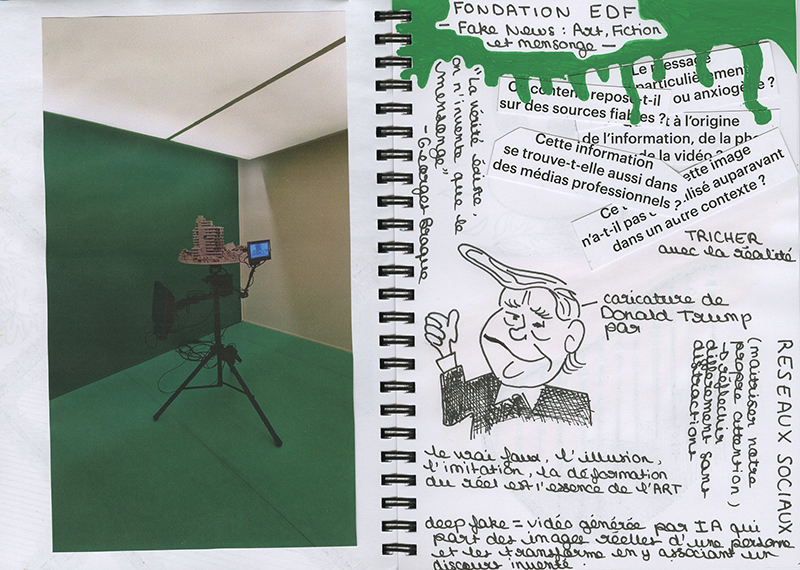 FONDATION EDF
- Fake News : Art, Fiction
et mensonge -
"La vérité existe,
on n'invente que le
mensonge"
- Georges Braque
Le message
particulièrement
ou anxiogène ?
Ce contenu repose-t-il
sur des sources fiables ?
à l'origine
de l'information, de la
de la vidéo ?
Cette information
se trouve-t-elle aussi dans
des médias professionnels ?
cette image
n'a-t-il pas utilisé auparavant
dans un autre contexte ?
TRICHER
avec la réalité
caricature de
Donald Trump
par
RESEAUX SOCIAUX
(maîtriser notre
propre attention)
→ réfléchir
différement sans
distractions
le vrai faux, l'illusion,
l'imitation, la déformation
du réel est l'essence de l'ART
deep fake = vidéo générée par IA qui
part des images réelles d'une personne
et les transforme en y associant un
discours inventé.